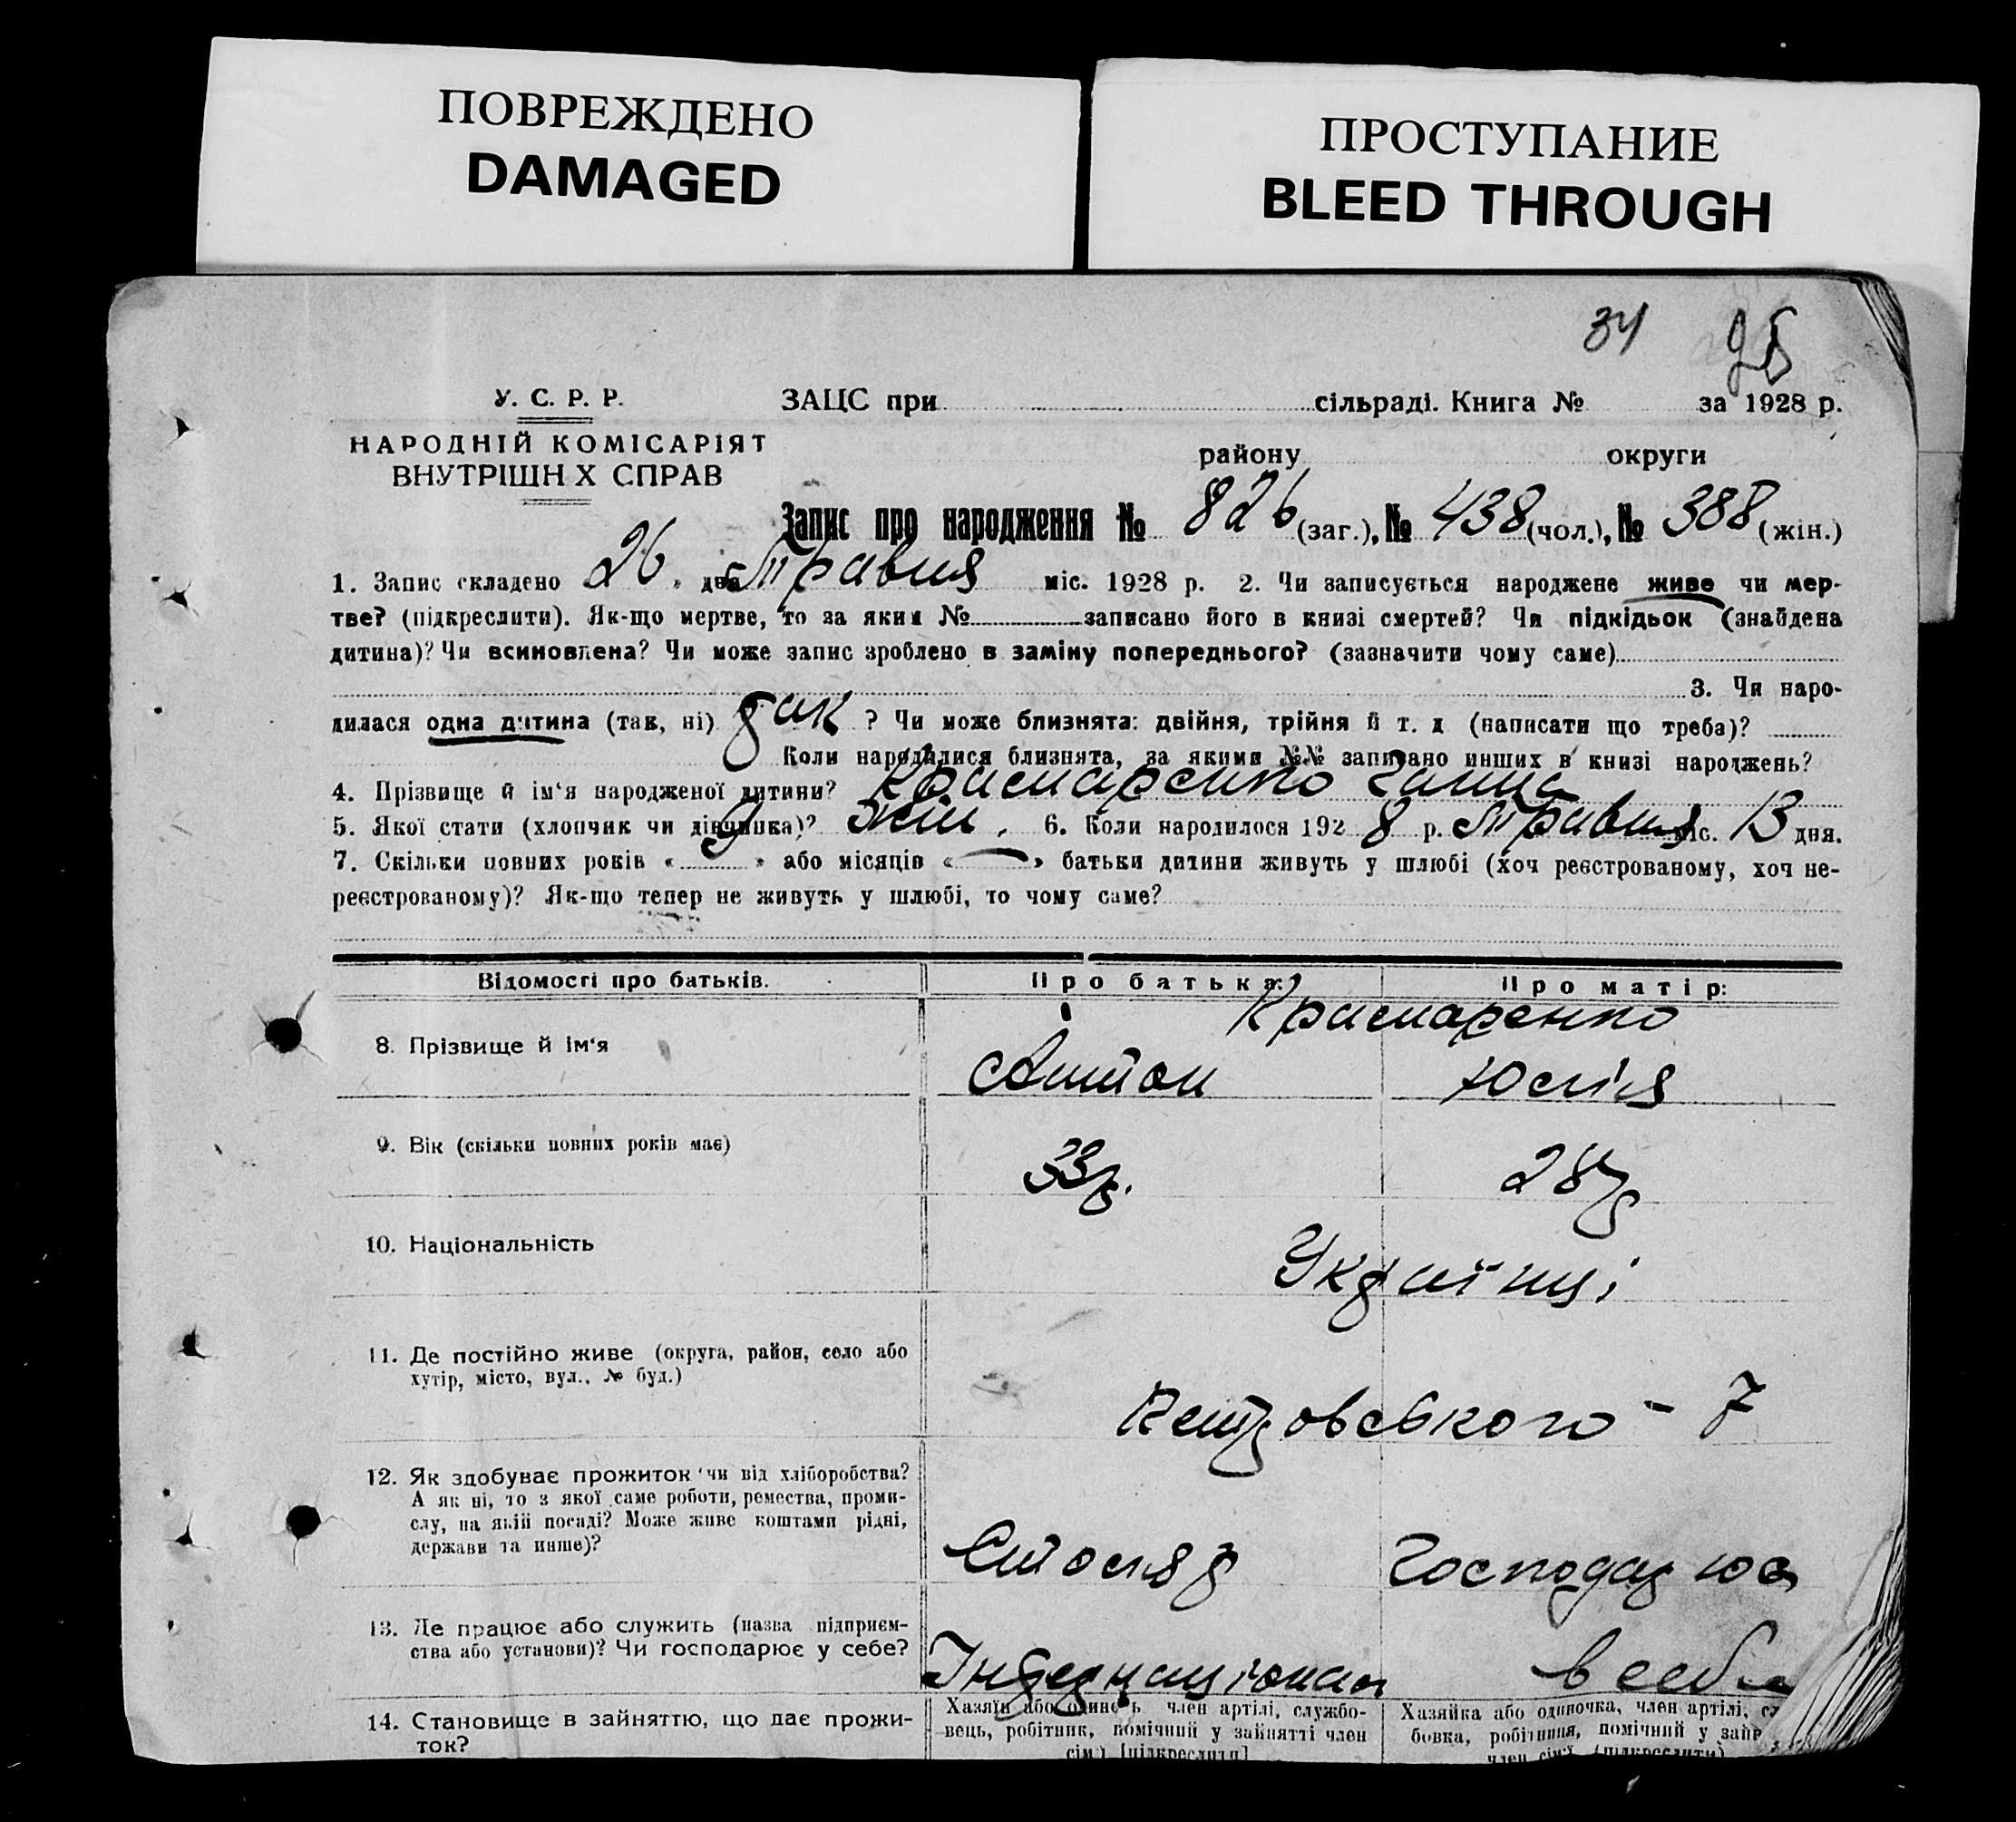 ПОВРЕЖДЕНО
DAMAGED
ПРОСТУПАНИЕ
BLEED THROUGH
34
У. С. Р. Р.
НАРОДНІЙ КОМІСАРІЯТ
ВНУТРІШН Х СПРАВ
ЗАЦС при сільраді. Книга № за 1928 р.
району округи
Запис про народження № 826 (заг.), № 438 (чол.), № 388 (жін.)
1. Запис складено 26 » дня Травня міс. 1928 р. 2. Чи записується народжене живе чи мер-
тве? (підкреслити). Як-що мертве, то за яким № записано його в книзі смертей? Чи підкідьок (знайдена
дитина)? Чи всиновлена? Чи може запис зроблено в заміну попереднього? (зазначити чому саме)
3. Чи наро-
дилася одна дитина (так, ні) так ? Чи може близнята: двійня, трійня й т. д (написати що треба)?
Коли народилися близнята, за якими №№ записано инших в книзі народжень?
4. Прізвище й ім‘я народженої дитини? Крамаренко Ганна
5. Якої стати (хлопчик чи дівчинка)? жін. 6. Коли народилося 192 8 р. Травня міс. 13 дня.
7. Скільки повних років « » або місяців « — » батьки дитини живуть у шлюбі (хоч реєстрованому, хоч не-
реєстрованому)? Як-що тепер не живуть у шлюбі, то чому саме?
Відомості про батьків. Про батька: Про матір:
Крамаренко
8. Прізвище й ім‘я Антон Юлія
9. Вік (скільки повних років має) 33р. 28р
10. Національність Українці
11. Де постійно живе (округа, район, село або
хутір, місто, вул., № буд.)
Петровського - 7
12. Як здобуває прожиток чи від хліборобства?
А як ні, то з якої саме роботи, ремества, проми-
слу, на якій посаді? Може живе коштами рідні,
держави та инше)?
Столяр Господарює
13. Де працює або служить (назва підприєм-
ства або установи)? Чи господарює у себе?
Інтернаціонал в себе
14. Становище в зайняттю, що дає прожи-
ток?
Хазяїн або одинець член артілі, службо-
вець, робітник, помічний у зайнятті член
сім'ї [підкреслити]
Хазяйка або одиночка, член артілі, сл
бовка, робітниця, помічний у зайн
член сім'ї (підкреслити)